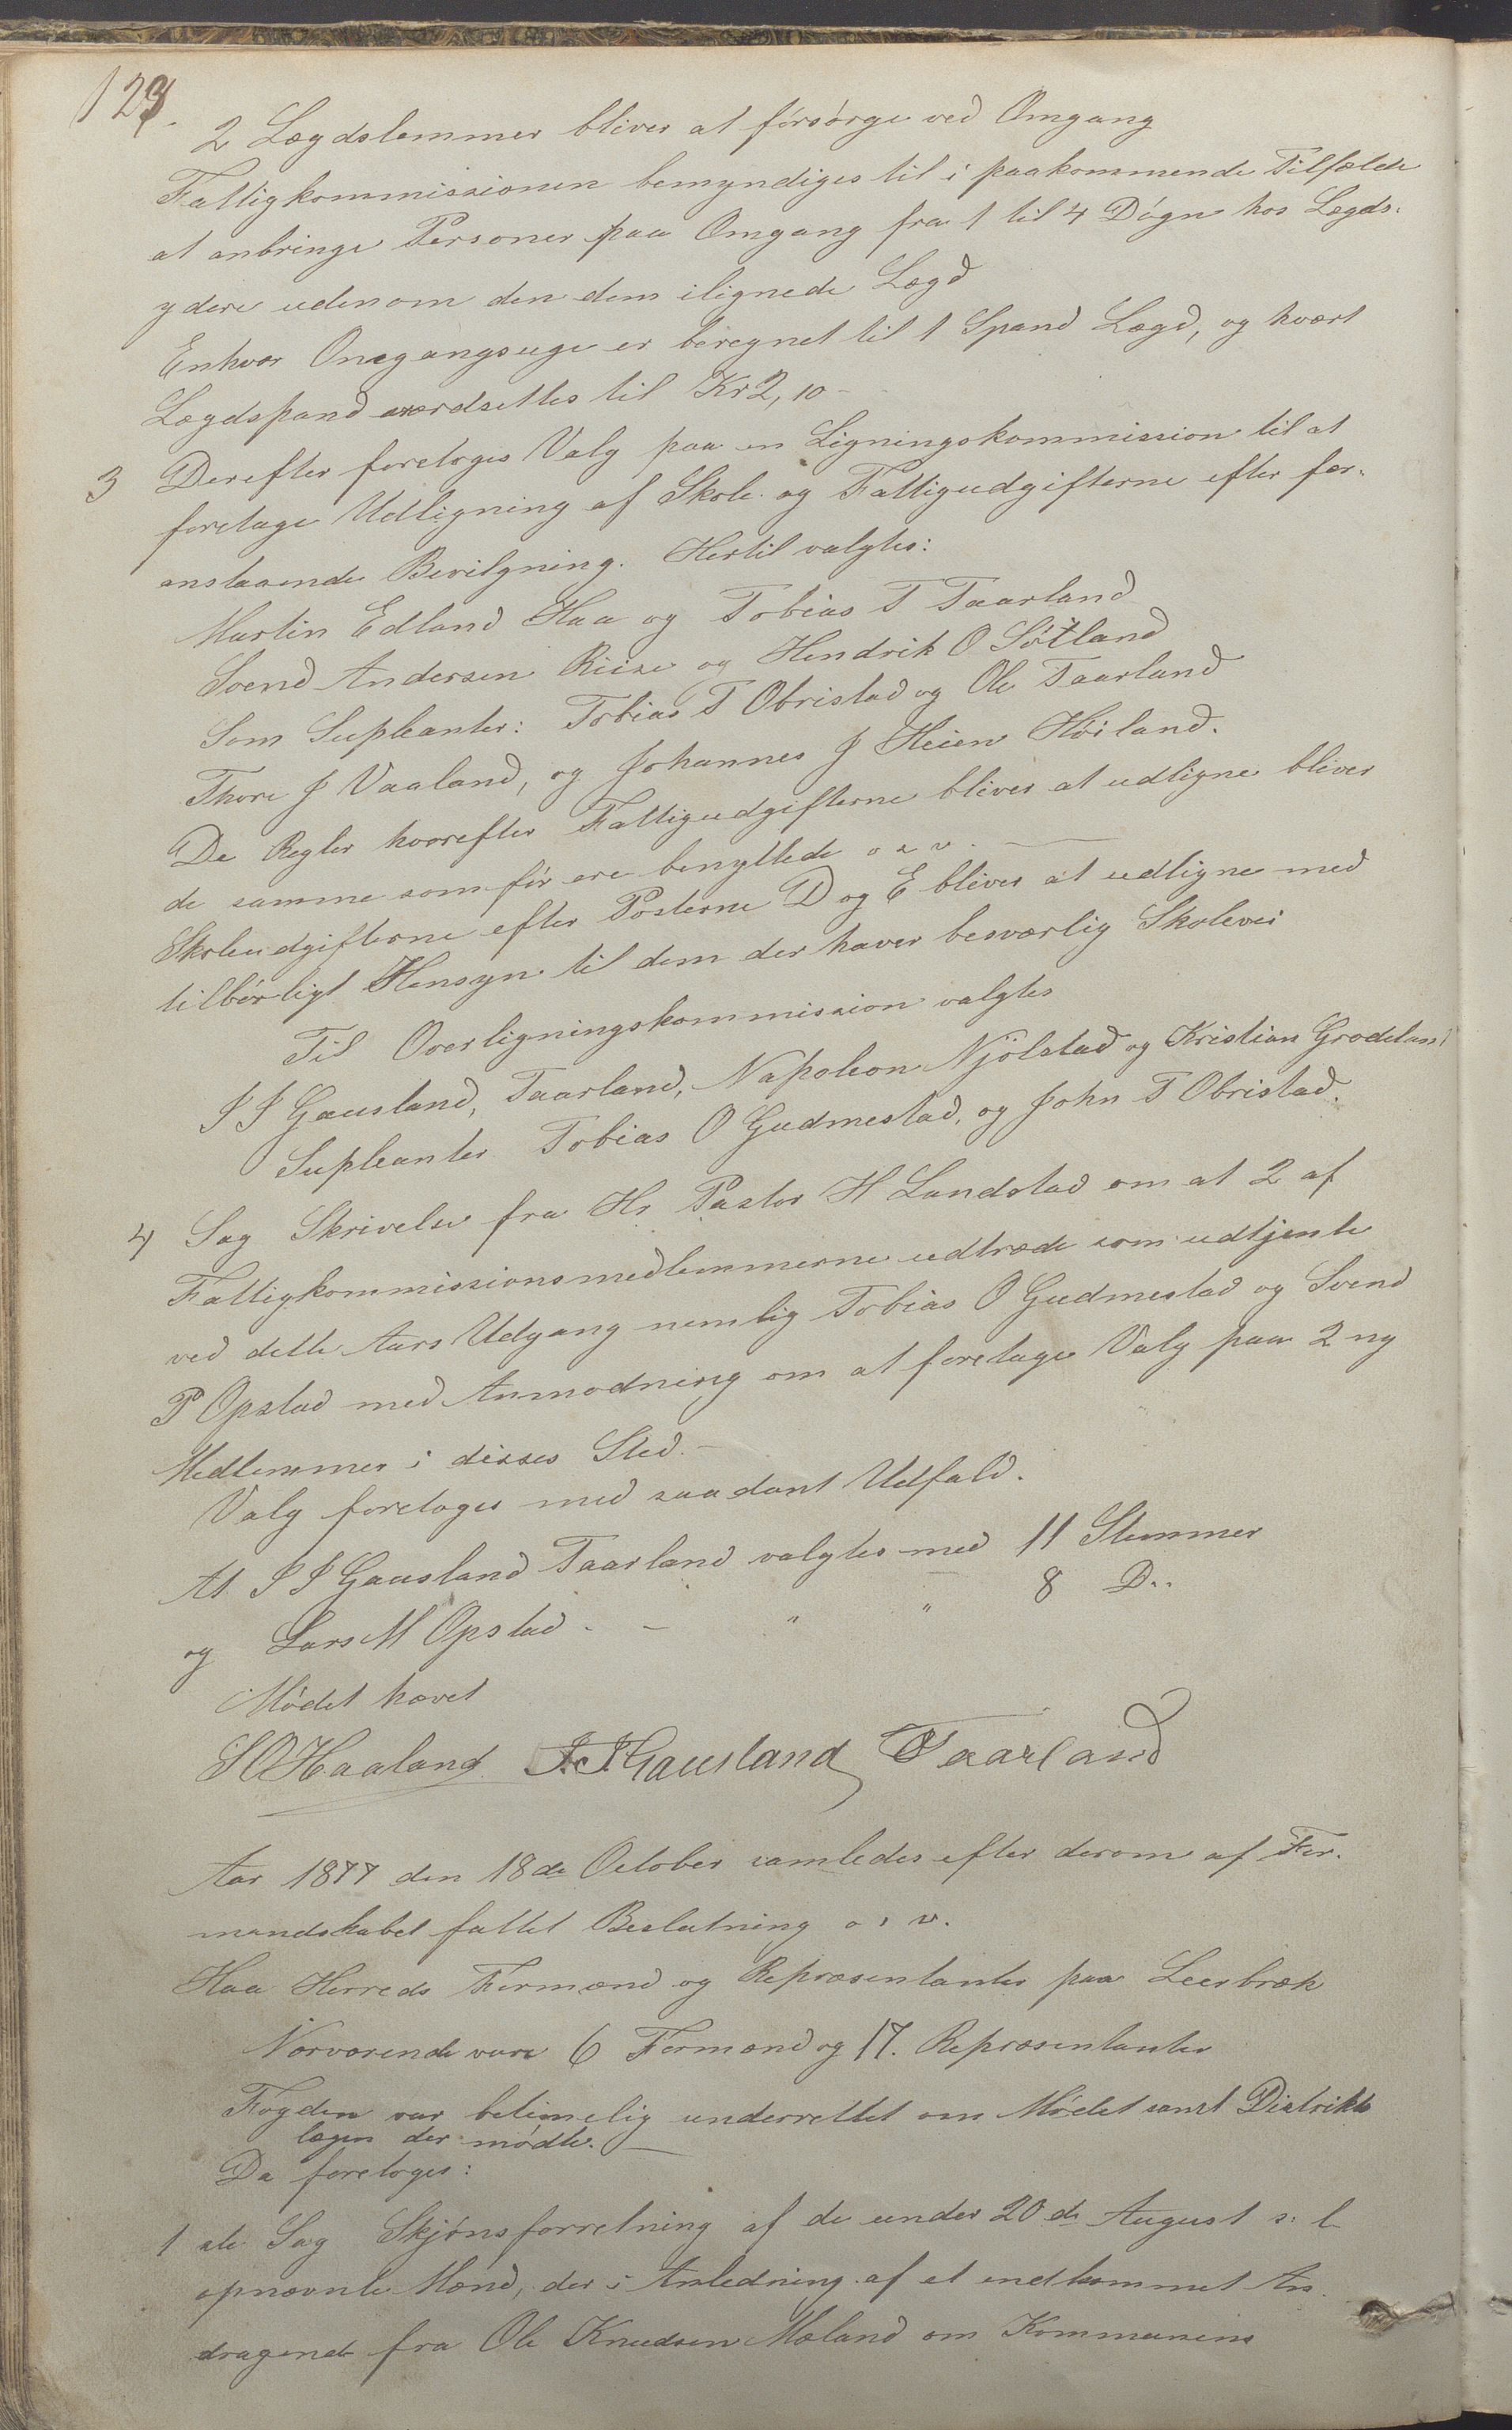 129.
2 Lægdslemmer bliver at førsørge ved Omgang
Fattigkommissionen bemyndiges til i paakommende Tilfælde
at anbringe Personer paa Omgang fra 1 til 4 Døgn hos Lægds-
ydere udenom den dem ilignede Lægd
Enhver Omgangsuge er beregnet til 1 Spand Lægd, og hvært
Lægdspand værdsettes til Kr 2,10 -
3 Derefter foretoges Valg paa en Ligningskommission til at
foretage Udligning af Skole- og Fattigudgifterne efter før-
anstaaende Bevilgning. Hertil valgtes:
Martin Edland Haa og Tobias T Taarland
Svend Andersen Riise og Hendrik O Søtland
Som Supleanter: Tobias T Obristad og Ole Taarland
Thore J Vaaland, og Johannes J Heien Høiland.
De Regler hvorefter Fattigudgifterne bliver at udligne bliver
de samme som før ere benyttede o s v.
Skoleudgifterne efter Posterne D og E bliver at udligne med
tilbørligt Hensyn til dem der haver besværlig Skolevei
Til Overligningskommission valgtes
I I Gausland, Taarland, Napoleon Njølstad og Kristian Grødeland
Supleanter Tobias O Gudmestad, og John T Obristad.
4 Sag Skrivelse fra Hr Pastor H Landstad om at 2 af
Fattigkommissionsmedlemmerne udtræde som udtjente
ved dette Aars Udgang nemlig Tobias O Gudmestad og Svend
P Opstad med Anmodning om at foretage Valg paa 2 ny
Medlemmer i disses Sted. -
Valg foretoges med saadant Udfald.
At I I Gausland Taarland valgtes med 11 Stemmer
og Lars M Opstad - - " " 8 D..
Mødet hævet
S O Haaland I. I. Gausland O Taarland
Aar 1877 den 18de October samledes efter derom af For-
mandskabet fattet Beslutning o s v.
Haa Herreds Formænd og Repræsentanter paa Leerbræk
Nærværende vare 6 Formænd og 17. Repræsentanter
Fogden var betimelig underrettet om Mødet samt Distrikts
lægen der mødte. -
Da foretoges:
1 ste Sag Skjønsforretning af de under 20de August s: l
opnævnte Mænd, der i Anledning af et indkommet An-
dragende fra Ole Knudsen Mæland om Kommunens